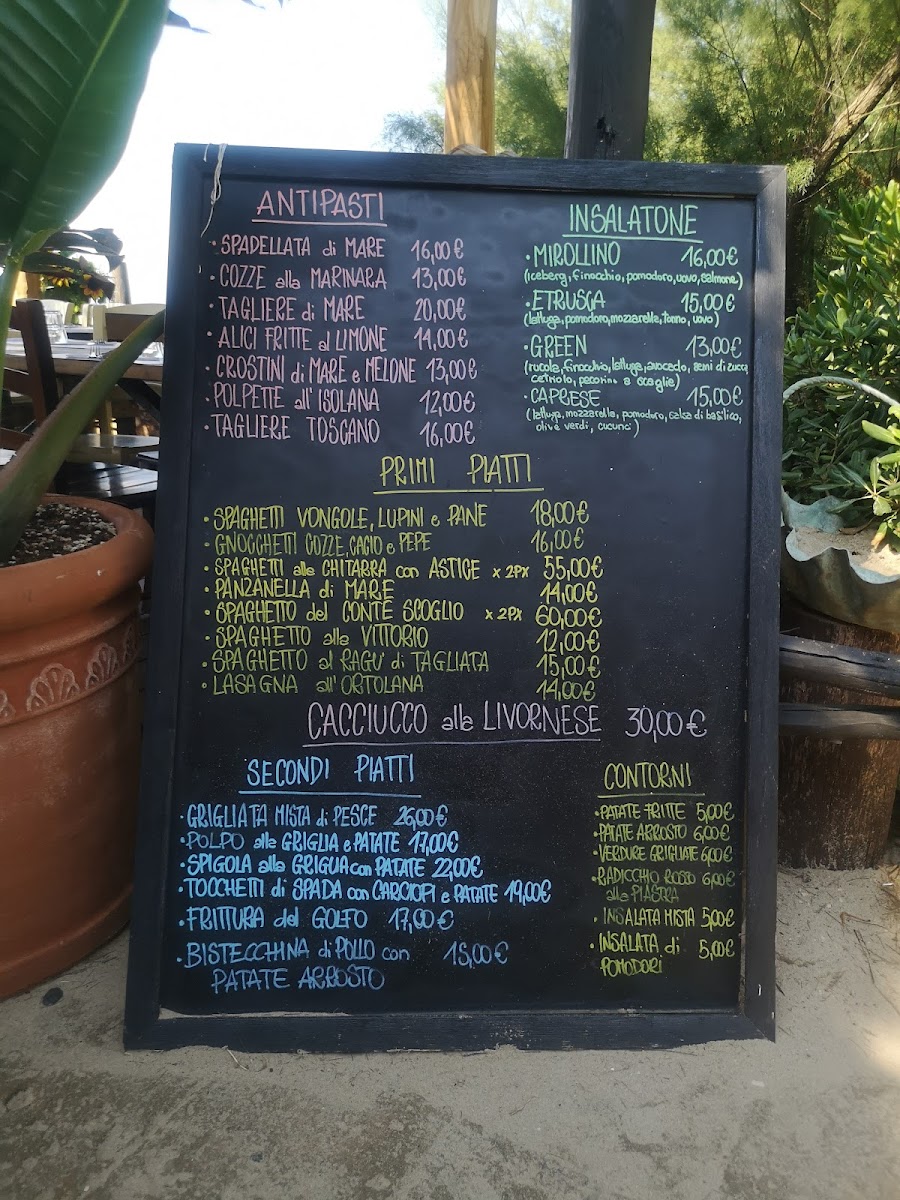 ANTIPASTI
· SPADELLATA di MARE 16,00€
· COZZE alla MARINARA 13,00€
· TAGLIERE di MARE 20,00€
· ALICI FRITTE al LIMONE 14,00€
· CROSTINI di MARE e MELONE 13,00€
· POLPETTE all'ISOLANA 12,00€
· TAGLIERE TOSCANO 16,00€
INSALATONE
· MIROLLINO 16,00€
(iceberg, finocchio, pomodoro, uovo, salmone)
· ETRUSCA 15,00€
(lattuga, pomodoro, mozzarella, tonno, uovo)
· GREEN 13,00€
(rucola, finocchio, lattuga, avocado, semi di zucca
cetriolo, pecorino a scaglie)
· CAPRESE 15,00€
(lattuga, mozzarella, pomodoro, salsa di basilico,
olive verdi, cucunci)
PRIMI PIATTI
· SPAGHETTI VONGOLE, LUPINI e PANE 18,00€
· GNOCCHETTI COZZE, CACIO e PEPE 16,00€
· SPAGHETTI alla CHITARRA con ASTICE x 2PX 55,00€
· PANZANELLA di MARE 14,00€
· SPAGHETTO del CONTE SCOGLIO x 2PX 60,00€
· SPAGHETTO alla VITTORIO 12,00€
· SPAGHETTO al RAGU' di TAGLIATA 15,00€
· LASAGNA all'ORTOLANA 14,00€
CACCIUCCO alla LIVORNESE 30,00€
SECONDI PIATTI
· GRIGLIATA MISTA di PESCE 26,00€
· POLPO alla GRIGLIA e PATATE 17,00€
· SPIGOLA alla GRIGLIA con PATATE 22,00€
· TOCCHETTI di SPADA con CARCIOFI e PATATE 19,00€
· FRITTURA del GOLFO 17,00€
· BISTECCHINA di POLLO con 15,00€
PATATE ARROSTO
CONTORNI
· PATATE FRITTE 5,00€
· PATATE ARROSTO 6,00€
· VERDURE GRIGLIATE 6,00€
· RADICCHIO ROSSO 6,00€
alla PIASTRA
· INSALATA MISTA 5,00€
· INSALATA di 5,00€
POMODORI